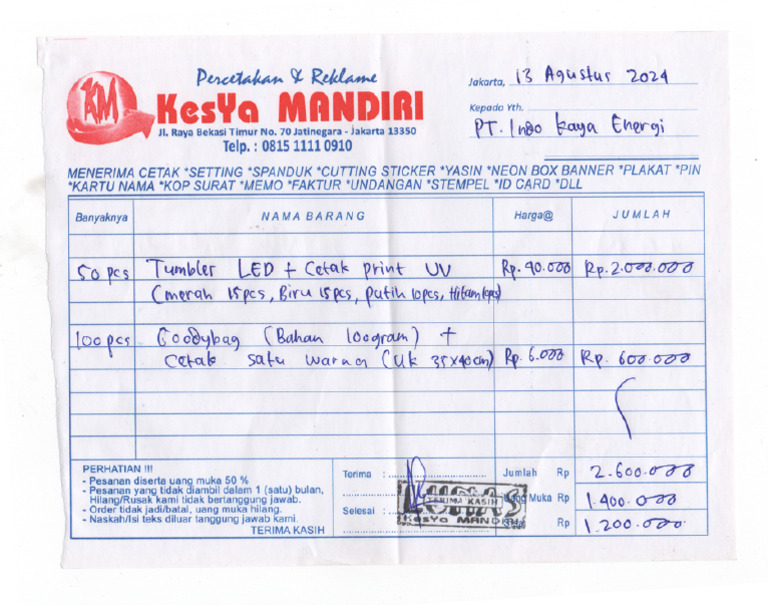 Percetakan & Reklame
KM
KesYa MANDIRI
Jl. Raya Bekasi Timur No. 70 Jatinegara - Jakarta 13350
Telp. : 0815 1111 0910
Jakarta, 13 Agustus 2024
Kepada Yth.
PT. Indo Kaya Energi
MENERIMA CETAK *SETTING *SPANDUK *CUTTING STICKER *YASIN *NEON BOX BANNER *PLAKAT *PIN
*KARTU NAMA *KOP SURAT *MEMO *FAKTUR *UNDANGAN *STEMPEL *ID CARD *DLL
Banyaknya NAMA BARANG Harga@ JUMLAH
50 pcs Tumbler LED + Cetak print UV Rp. 40.000 Rp. 2.000.000
(merah 15pcs, Biru 15pcs, putih 10pcs, Hitam 10pcs)
100 pcs Goodybag (Bahan 100gram) +
Cetak satu warna (Uk 35x40cm) Rp. 6.000 Rp. 600.000
PERHATIAN !!!
- Pesanan diserta uang muka 50 %
- Pesanan yang tidak diambil dalam 1 (satu) bulan,
Hilang/Rusak kami tidak bertanggung jawab.
- Order tidak jadi/batal, uang muka hilang.
- Naskah/Isi teks diluar tanggung jawab kami.
TERIMA KASIH
Terima :
Selesai :
LUNAS
TERIMA KASIH
KesYa MANDIRI
Jumlah Rp 2.600.000
Uang Muka Rp 1.400.000
Rp 1.200.000